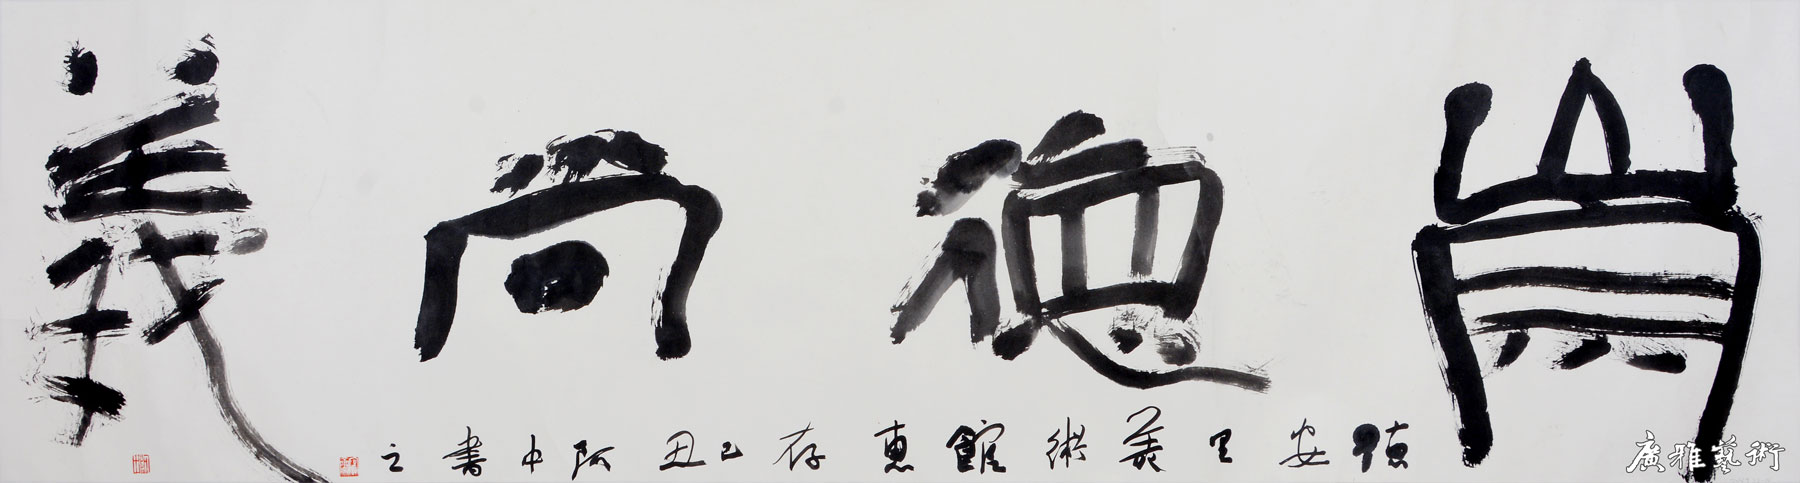 崇德尚義
德安里美術館惠存己丑阿中書之
廣雅藝術